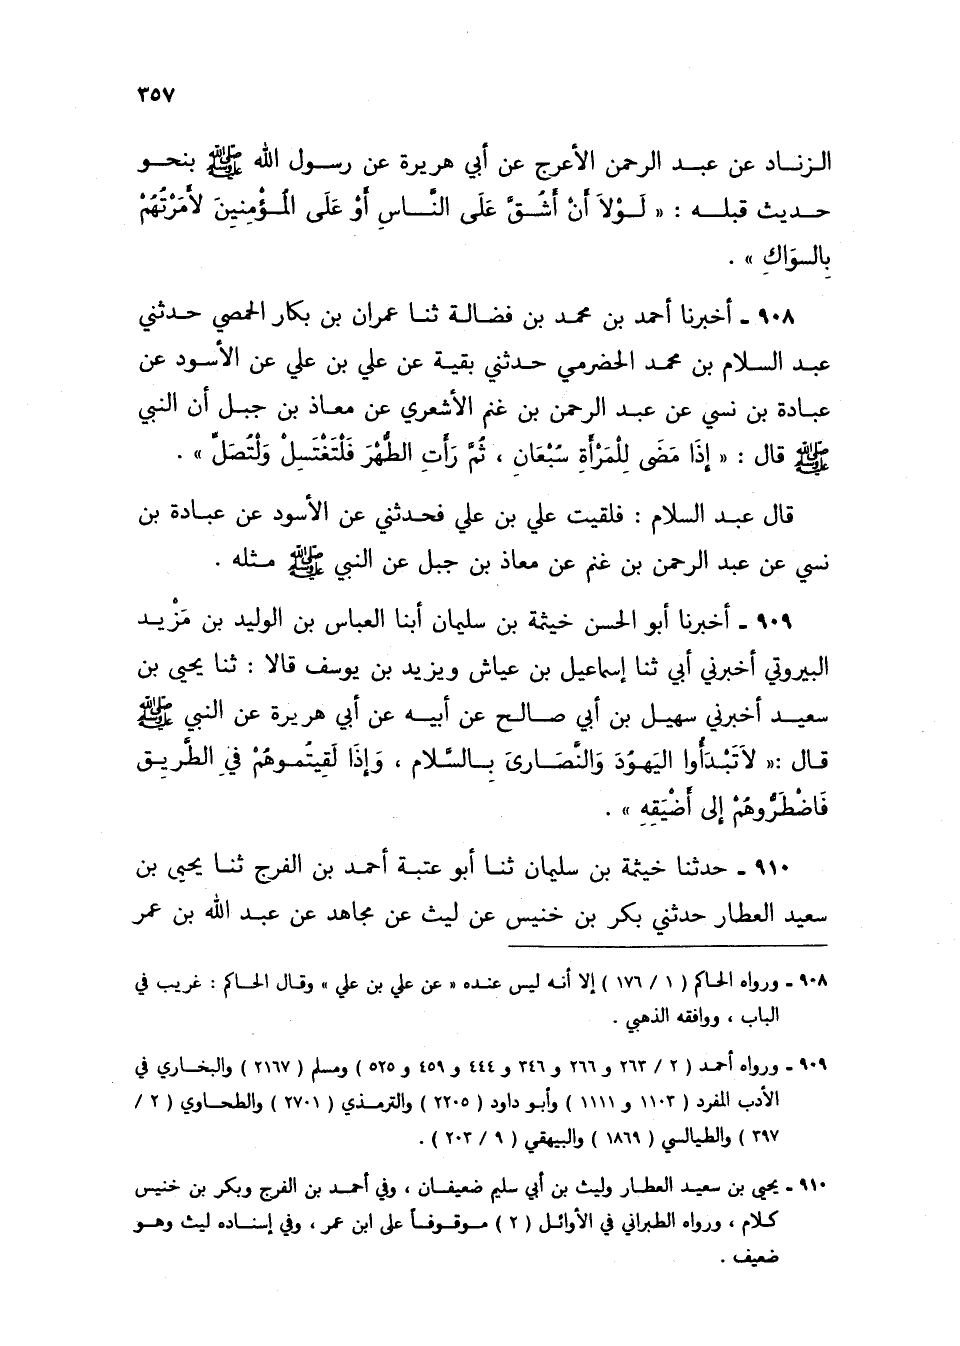 ٣٥٧
الـزنـاد عن عبـد الرحمن الأعرج عن أبي هريرة عن رسـول الله ﷺ بنحـو
حـديث قبلـه : « لَـوْلاَ أَنْ أَشُـقَّ عَلَى النَّـاسِ أَوْ عَلَى المُـؤْمِنِينَ لأَمَرْتُهُمْ
بِالسوَاكِ » .
٩٠٨ ـ أخبرنا أحمد بن محمد بن فضـالـة ثنـا عمران بن بكار الحمصي حـدثني
عبـد السـلام بن محمـد الحضرمي حـدثني بقيـة عن علي بن علي عن الأسـود عن
عبـادة بن نسي عن عبـد الرحمن بن غنم الأشعري عن معـاذ بن جبـل أن النبي
ﷺ قال : « إِذَا مَضَى لِلْمَرْأَةِ سُبْعَانِ ، ثُمَّ رَأَتِ الطُّهْرَ فَلْتَغْتَسِلْ وَلْتُصَلِّ » .
قال عبـد السلام : فلقيت علي بن علي فحـدثني عن الأسود عن عبـادة بن
نسي عن عبد الرحمن بن غنم عن معاذ بن جبل عن النبي ﷺ مـثله .
٩٠٩ ـ أخبرنا أبو الحسن خيثمة بن سليمان أبنا العباس بن الوليد بن مَزْيـد
البيروتي أخبرني أبي ثنا إسماعيل بن عياش ويزيد بن يوسف قالا : ثنا يحيى بن
سعيـد أخبرني سهيـل بن أبي صـالـح عن أبيـه عن أبي هريرة عن النبي ﷺ
قـال :« لاَتَبْـدَأُوا اليَهُوْدَ وَالنَّصَـارىَ بِـالسَّلام ، وَإِذَا لَقِيتُمـوهُمْ فِي الطَّرِيـقِ
فَاضْطَرُّوهُمْ إلى أَضْيَقِهِ » .
٩١٠ ـ حدثنا خيثمة بن سليمان ثنـا أبو عتبـة أحمـد بن الفرج ثنـا يحيى بن
سعيد العطار حدثني بكر بن خنيس عن ليث عن مجاهد عن عبـد الله بن عمر
٩٠٨ ـ ورواه الحاكم ( ١ / ١٧٦ ) إلا أنـه ليس عنـده « عن علي بن علي » وقـال الحـاكم : غريب في
الباب ، ووافقه الذهبي .
٩٠٩ ـ ورواه أحمـد ( ٢ / ٢٦٣ و ٢٦٦ و ٣٤٦ و ٤٤٤ و ٤٥٩ و ٥٢٥ ) ومسلم ( ٢١٦٧ ) والبخـاري في
الأدب المفرد ( ١١٠٣ و ١١١١ ) وأبـو داود ( ٢٢٠٥ ) والترمـذي ( ٢٧٠١ ) والطحـاوي ( ٢ /
٣٩٧ ) والطيالسي ( ١٨٦٩ ) والبيهقي ( ٩ / ٢٠٣ ) .
٩١٠ ـ يحيى بن سعيـد العطـار وليث بن أبي سليم ضعيفـان ، وفي أحمـد بن الفرج وبكر بن خنيس
كـلام ، ورواه الطبراني في الأوائـل ( ٢ ) مـوقـوفـاً على ابن عمر ، وفي إسنـاده ليث وهـو
ضعيف .